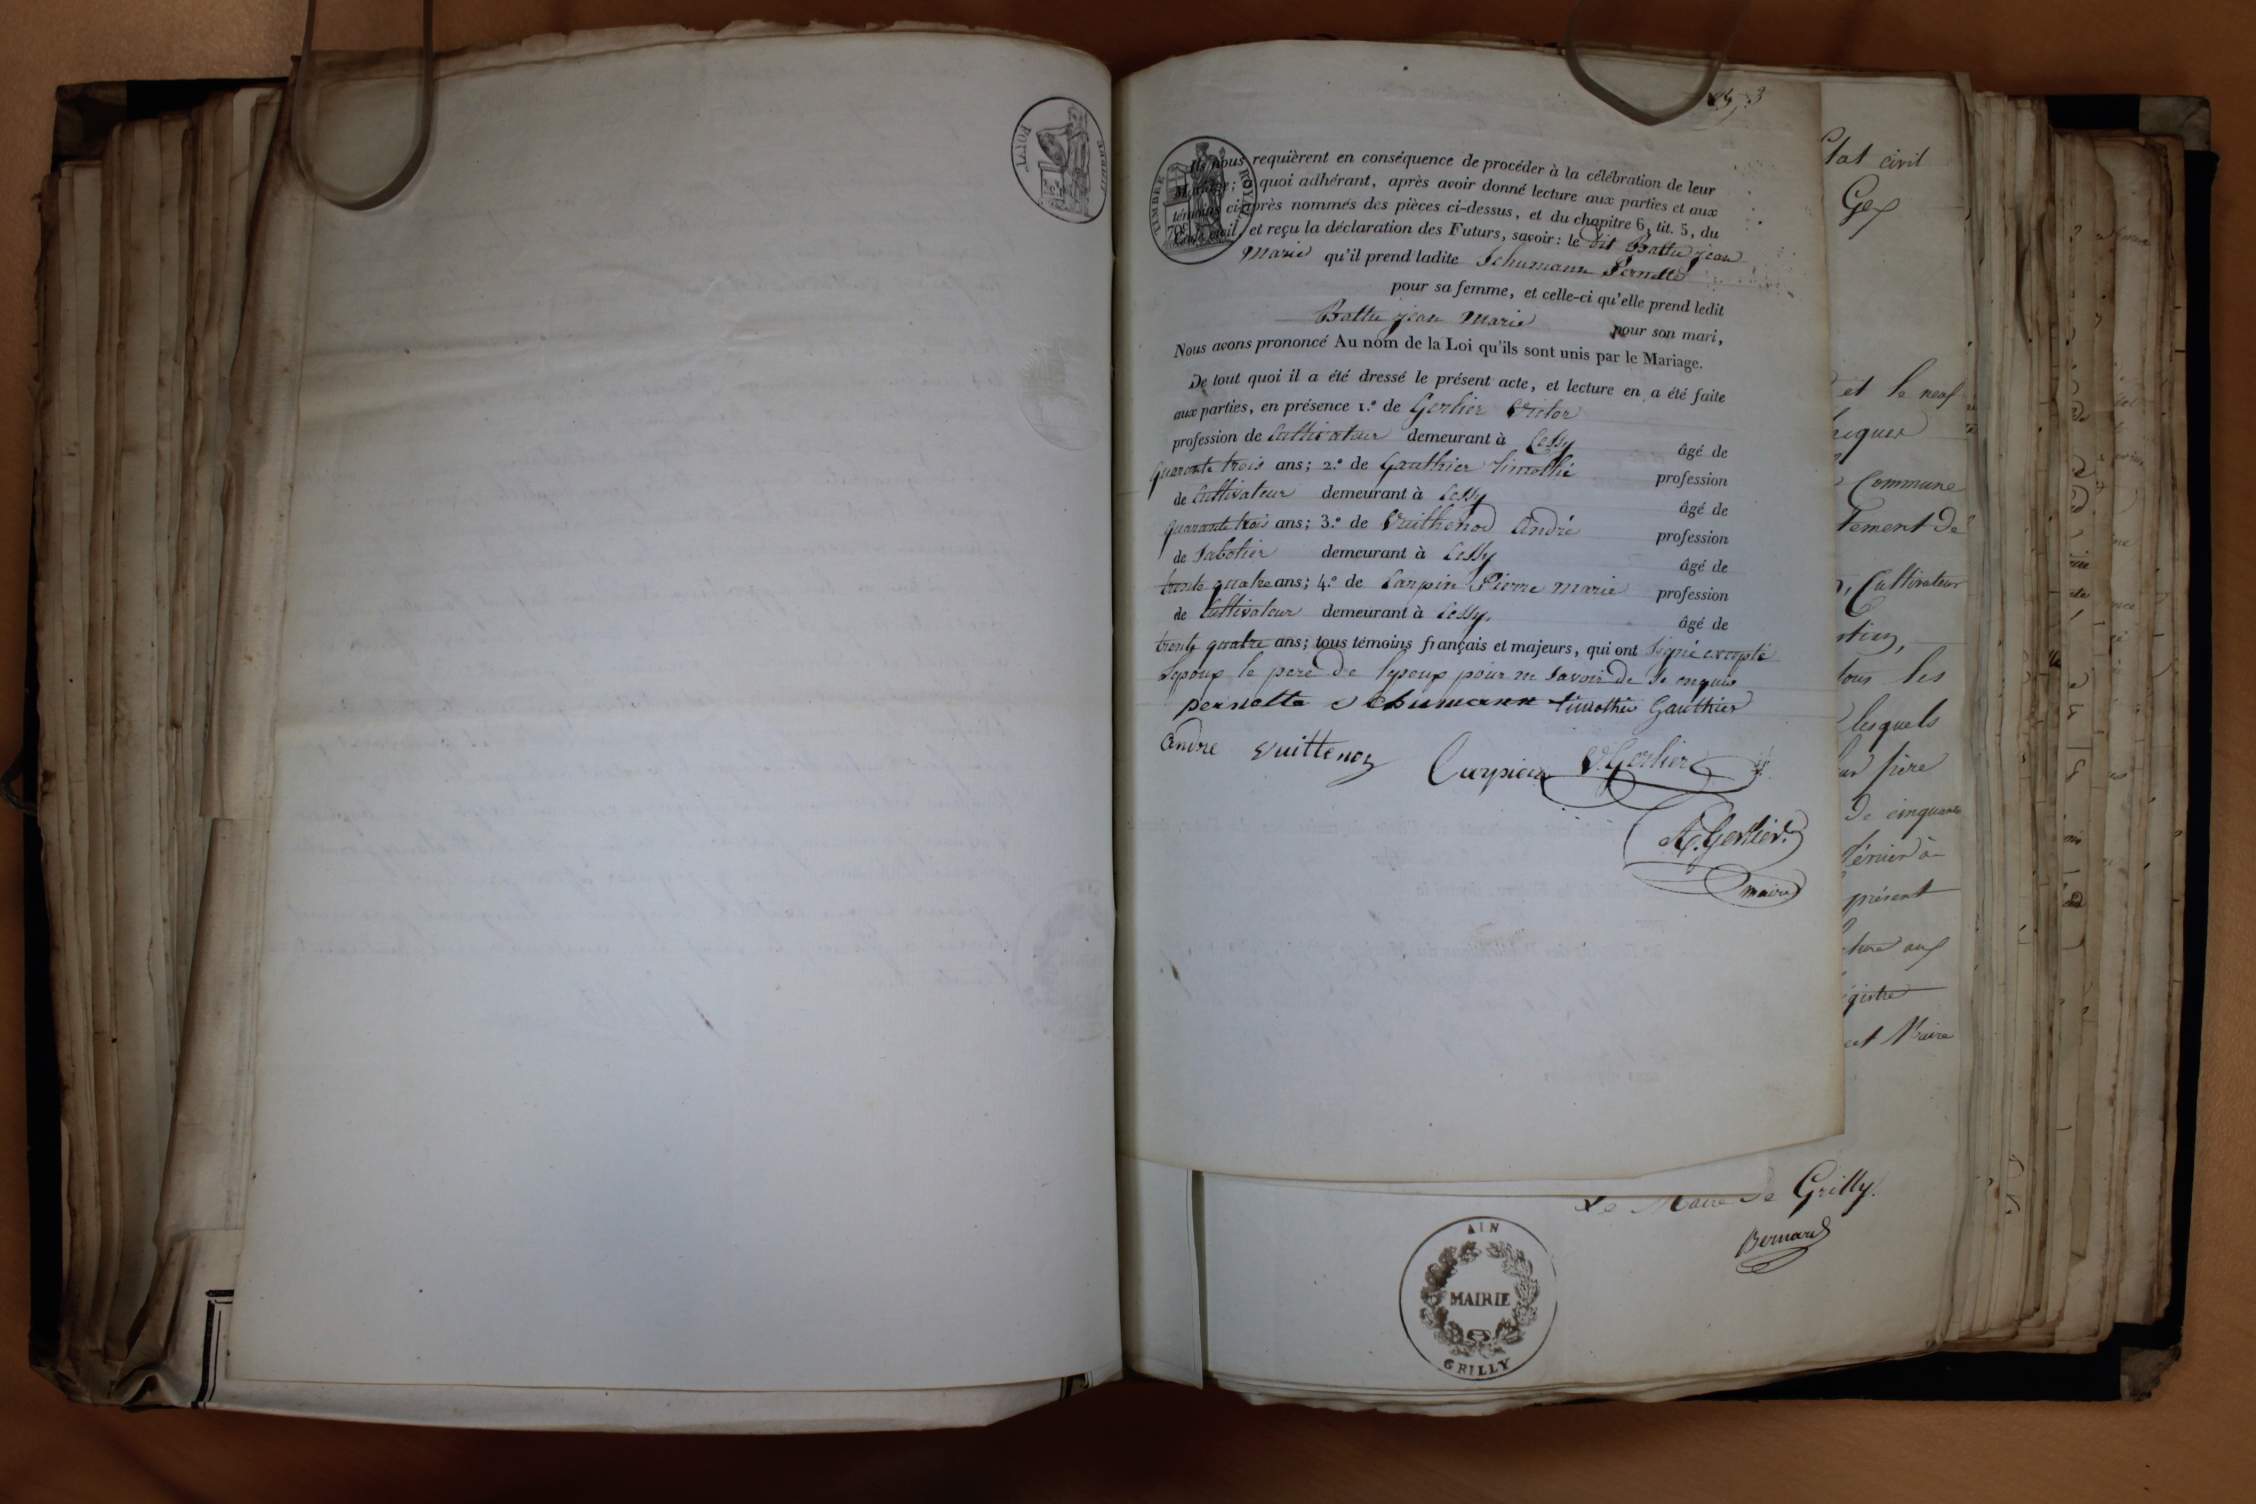 Ils nous requièrent en conséquence de procéder à la célébration de leur
Mariage; quoi adhérant, après avoir donné lecture aux parties et aux
témoins ci-après nommés des pièces ci-dessus, et du chapitre 6, tit. 5, du
Code civil, et reçu la déclaration des Futurs, savoir: le dit Battu jean
Marie qu'il prend ladite Schumann Pernette
pour sa femme, et celle-ci qu'elle prend ledit
Battu jean Marie pour son mari,
Nous avons prononcé Au nom de la Loi qu'ils sont unis par le Mariage.
De tout quoi il a été dressé le présent acte, et lecture en a été faite
aux parties, en présence 1.º de Gerlier Victor
profession de Cultivateur demeurant à Cessy âgé de
quarante trois ans; 2.º de Gauthier timothé profession
de Cultivateur demeurant à Cessy âgé de
quarante trois ans; 3.º de Vuithenod André profession
de Sabotier demeurant à Cessy âgé de
trente quatre ans; 4.º de Carpin Pierre marie profession
de Cultivateur demeurant à Cessy. âgé de
trente quatre ans; tous témoins français et majeurs, qui ont signé excepté
lepoux le pere de lepoux pour ne savoir de ce enquis
pernette schumann timothé Gauthier
andre vuittenoz Carpien V. Gerlier
A. Gerlier
maire
TIMBRE ROYAL
70 c
Etat civil
Gex
et le neuf
Commune
Cultivateur
tous les
lesquels
père
de cinquante
présent
Maire
Le Maire de Grilly.
Bernard
AIN
MAIRIE
GRILLY